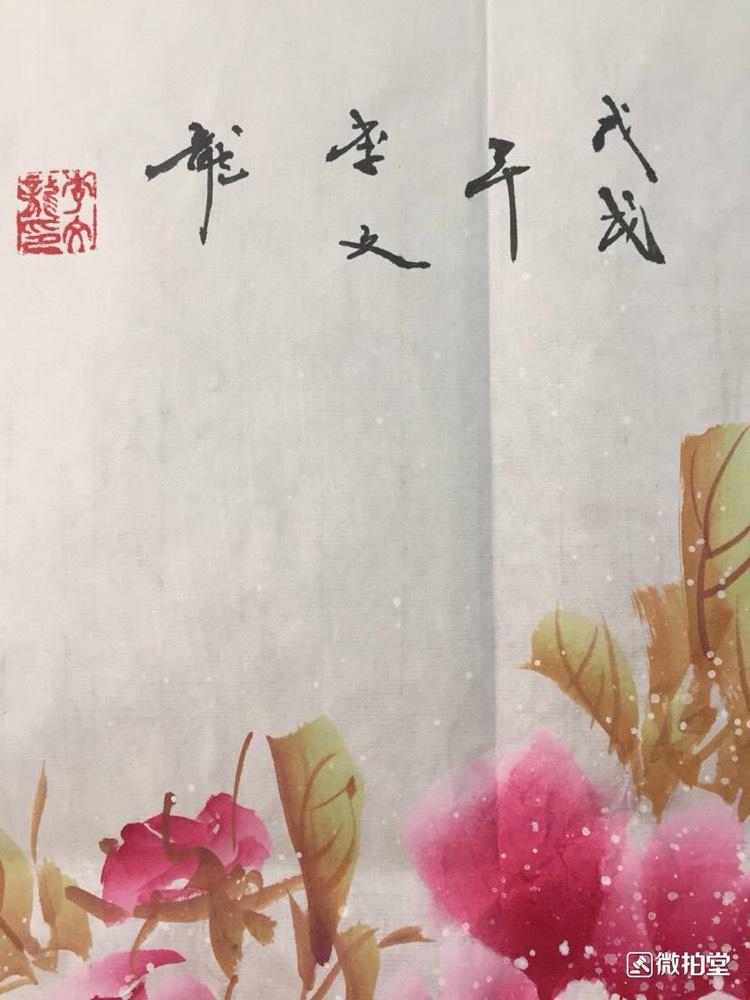 戊戌
年
李文
龍
李文龍印
微拍堂